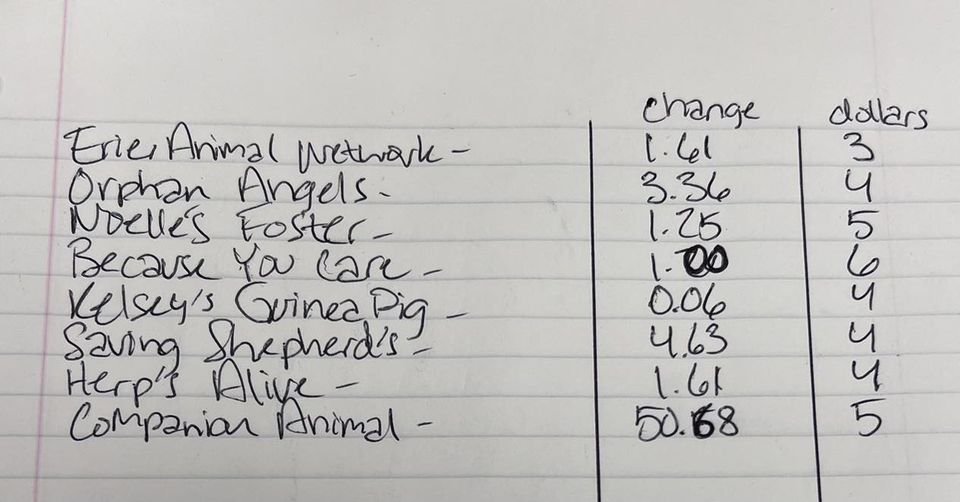 change dollars
Erie, Animal Network - 1.61 3
Orphan Angels - 3.36 4
Noelle's Foster - 1.25 5
Because You Care - 1.00 6
Kelsey's Guinea Pig - 0.06 4
Saving Shepherd's - 4.63 4
Herp's Alive - 1.61 4
Companion Animal - 50.68 5